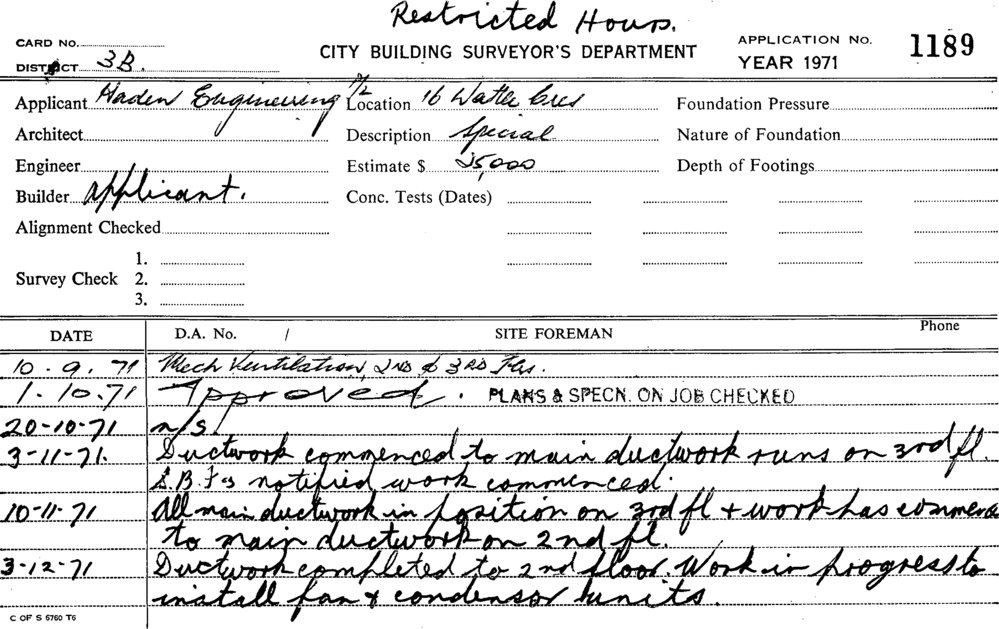 Restricted Hours.
CARD No.
CITY BUILDING SURVEYOR'S DEPARTMENT
APPLICATION No. 1189
DISTRICT 3B.
YEAR 1971
Applicant Haden Engineering P/L
Location 16 Watle Cres
Foundation Pressure
Architect
Description Special
Nature of Foundation
Engineer
Estimate $ 25,000
Depth of Footings
Builder Applicant.
Conc. Tests (Dates)
Alignment Checked
1.
Survey Check 2.
3.
DATE D.A. No. / SITE FOREMAN Phone
10.9.71 Mech Ventilation, 2ND & 3RD Flrs.
1.10.71 Approved. PLANS & SPECN. ON JOB CHECKED
20-10-71 n/s
3-11-71. Ductwork commenced to main ductwork runs on 3rd fl.
notified work commenced.
10-11-71 All main ductwork in position on 3rd fl + work has commence
to main ductwork on 2nd fl.
3-12-71 Ductwork completed to 2nd floor. Work in progress to
install fan & condensor units.
C OF S 6760 T6